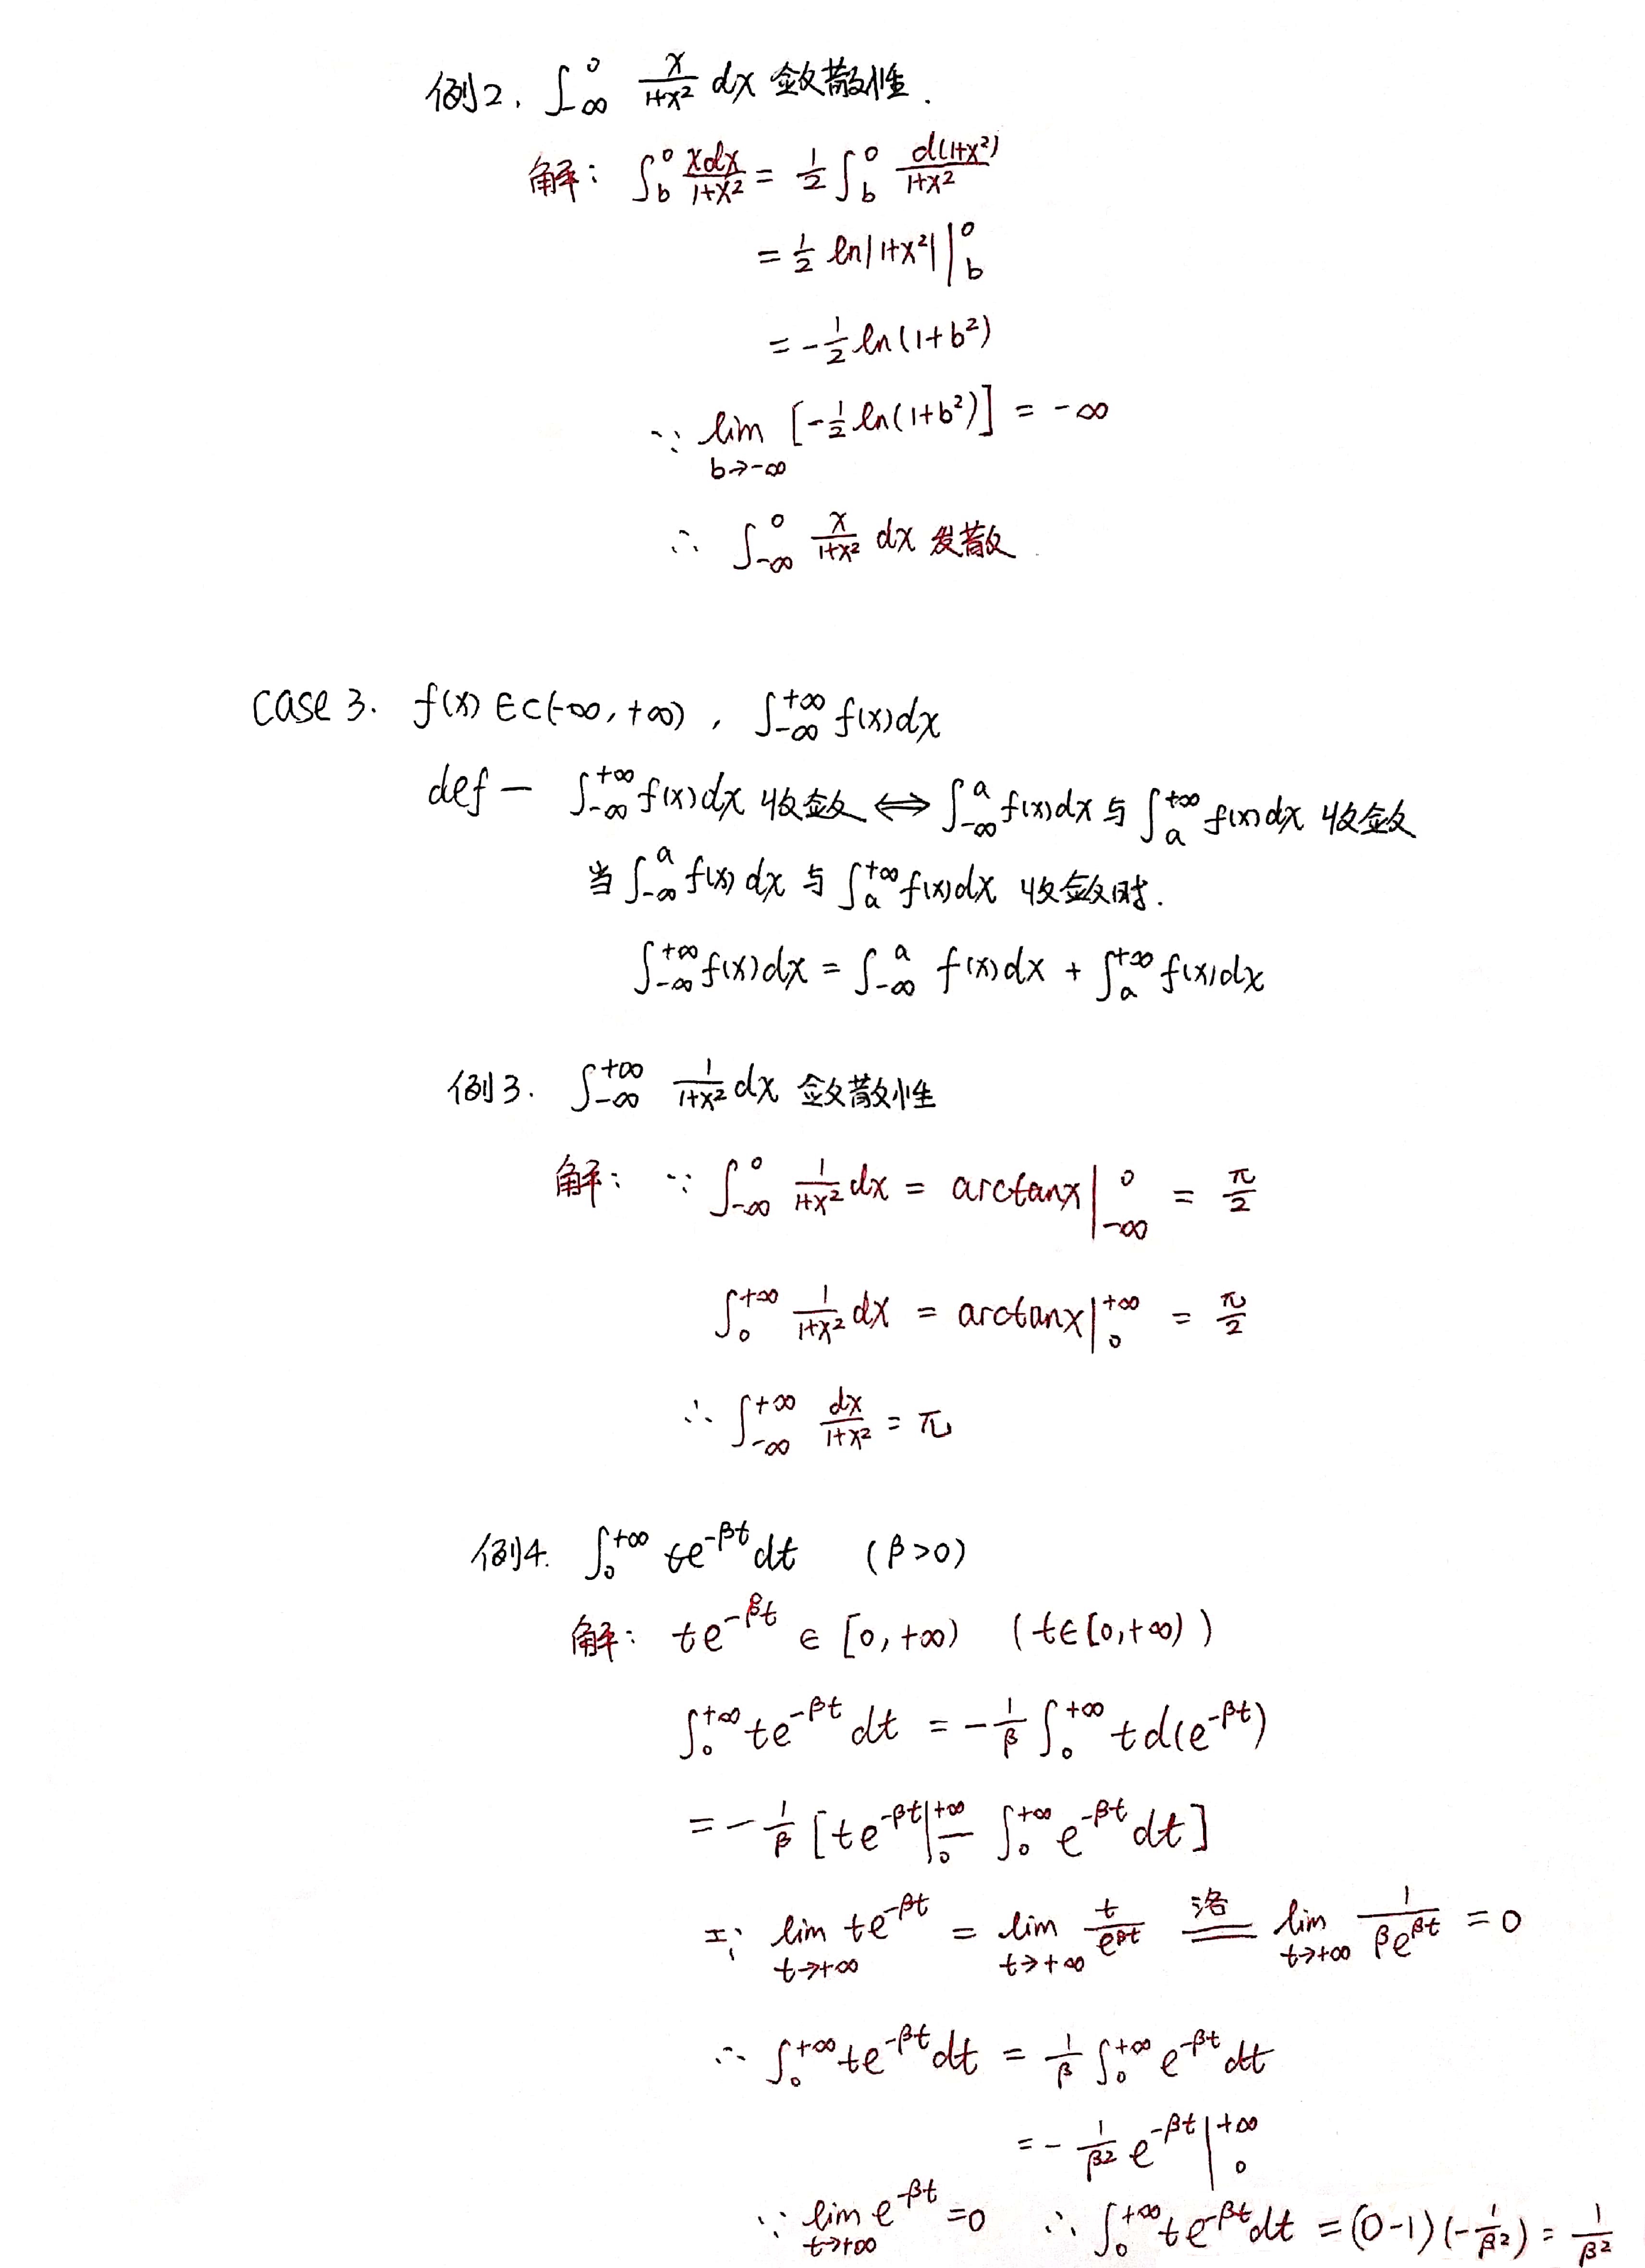 例2. ∫_{-∞}^{0} x/(1+x²) dx 敛散性.
解: ∫_b^0 xdx/(1+x²) = 1/2 ∫_b^0 d(1+x²)/(1+x²)
= 1/2 ln|1+x²| |_b^0
= -1/2 ln(1+b²)
∵ lim_{b→-∞} [-1/2 ln(1+b²)] = -∞
∴ ∫_{-∞}^{0} x/(1+x²) dx 发散.
Case 3. f(x)∈C(-∞,+∞), ∫_{-∞}^{+∞} f(x)dx
def — ∫_{-∞}^{+∞} f(x)dx 收敛 ⟺ ∫_{-∞}^{a} f(x)dx 与 ∫_a^{+∞} f(x)dx 收敛
当 ∫_{-∞}^{a} f(x)dx 与 ∫_a^{+∞} f(x)dx 收敛时.
∫_{-∞}^{+∞} f(x)dx = ∫_{-∞}^{a} f(x)dx + ∫_a^{+∞} f(x)dx
例3. ∫_{-∞}^{+∞} 1/(1+x²) dx 敛散性
解: ∵ ∫_{-∞}^{0} 1/(1+x²) dx = arctanx |_{-∞}^{0} = π/2
∫_0^{+∞} 1/(1+x²) dx = arctanx |_0^{+∞} = π/2
∴ ∫_{-∞}^{+∞} dx/(1+x²) = π
例4. ∫_0^{+∞} te^{-βt} dt (β>0)
解: te^{-βt} ∈ [0,+∞) (t∈[0,+∞))
∫_0^{+∞} te^{-βt} dt = -1/β ∫_0^{+∞} td(e^{-βt})
= -1/β [te^{-βt} |_0^{+∞} - ∫_0^{+∞} e^{-βt} dt]
∵ lim_{t→+∞} te^{-βt} = lim_{t→+∞} t/e^{βt} =洛= lim_{t→+∞} 1/(βe^{βt}) = 0
∴ ∫_0^{+∞} te^{-βt} dt = 1/β ∫_0^{+∞} e^{-βt} dt
= -1/β² e^{-βt} |_0^{+∞}
∵ lim_{t→+∞} e^{-βt} = 0 ∴ ∫_0^{+∞} te^{-βt} dt = (0-1)(-1/β²) = 1/β²